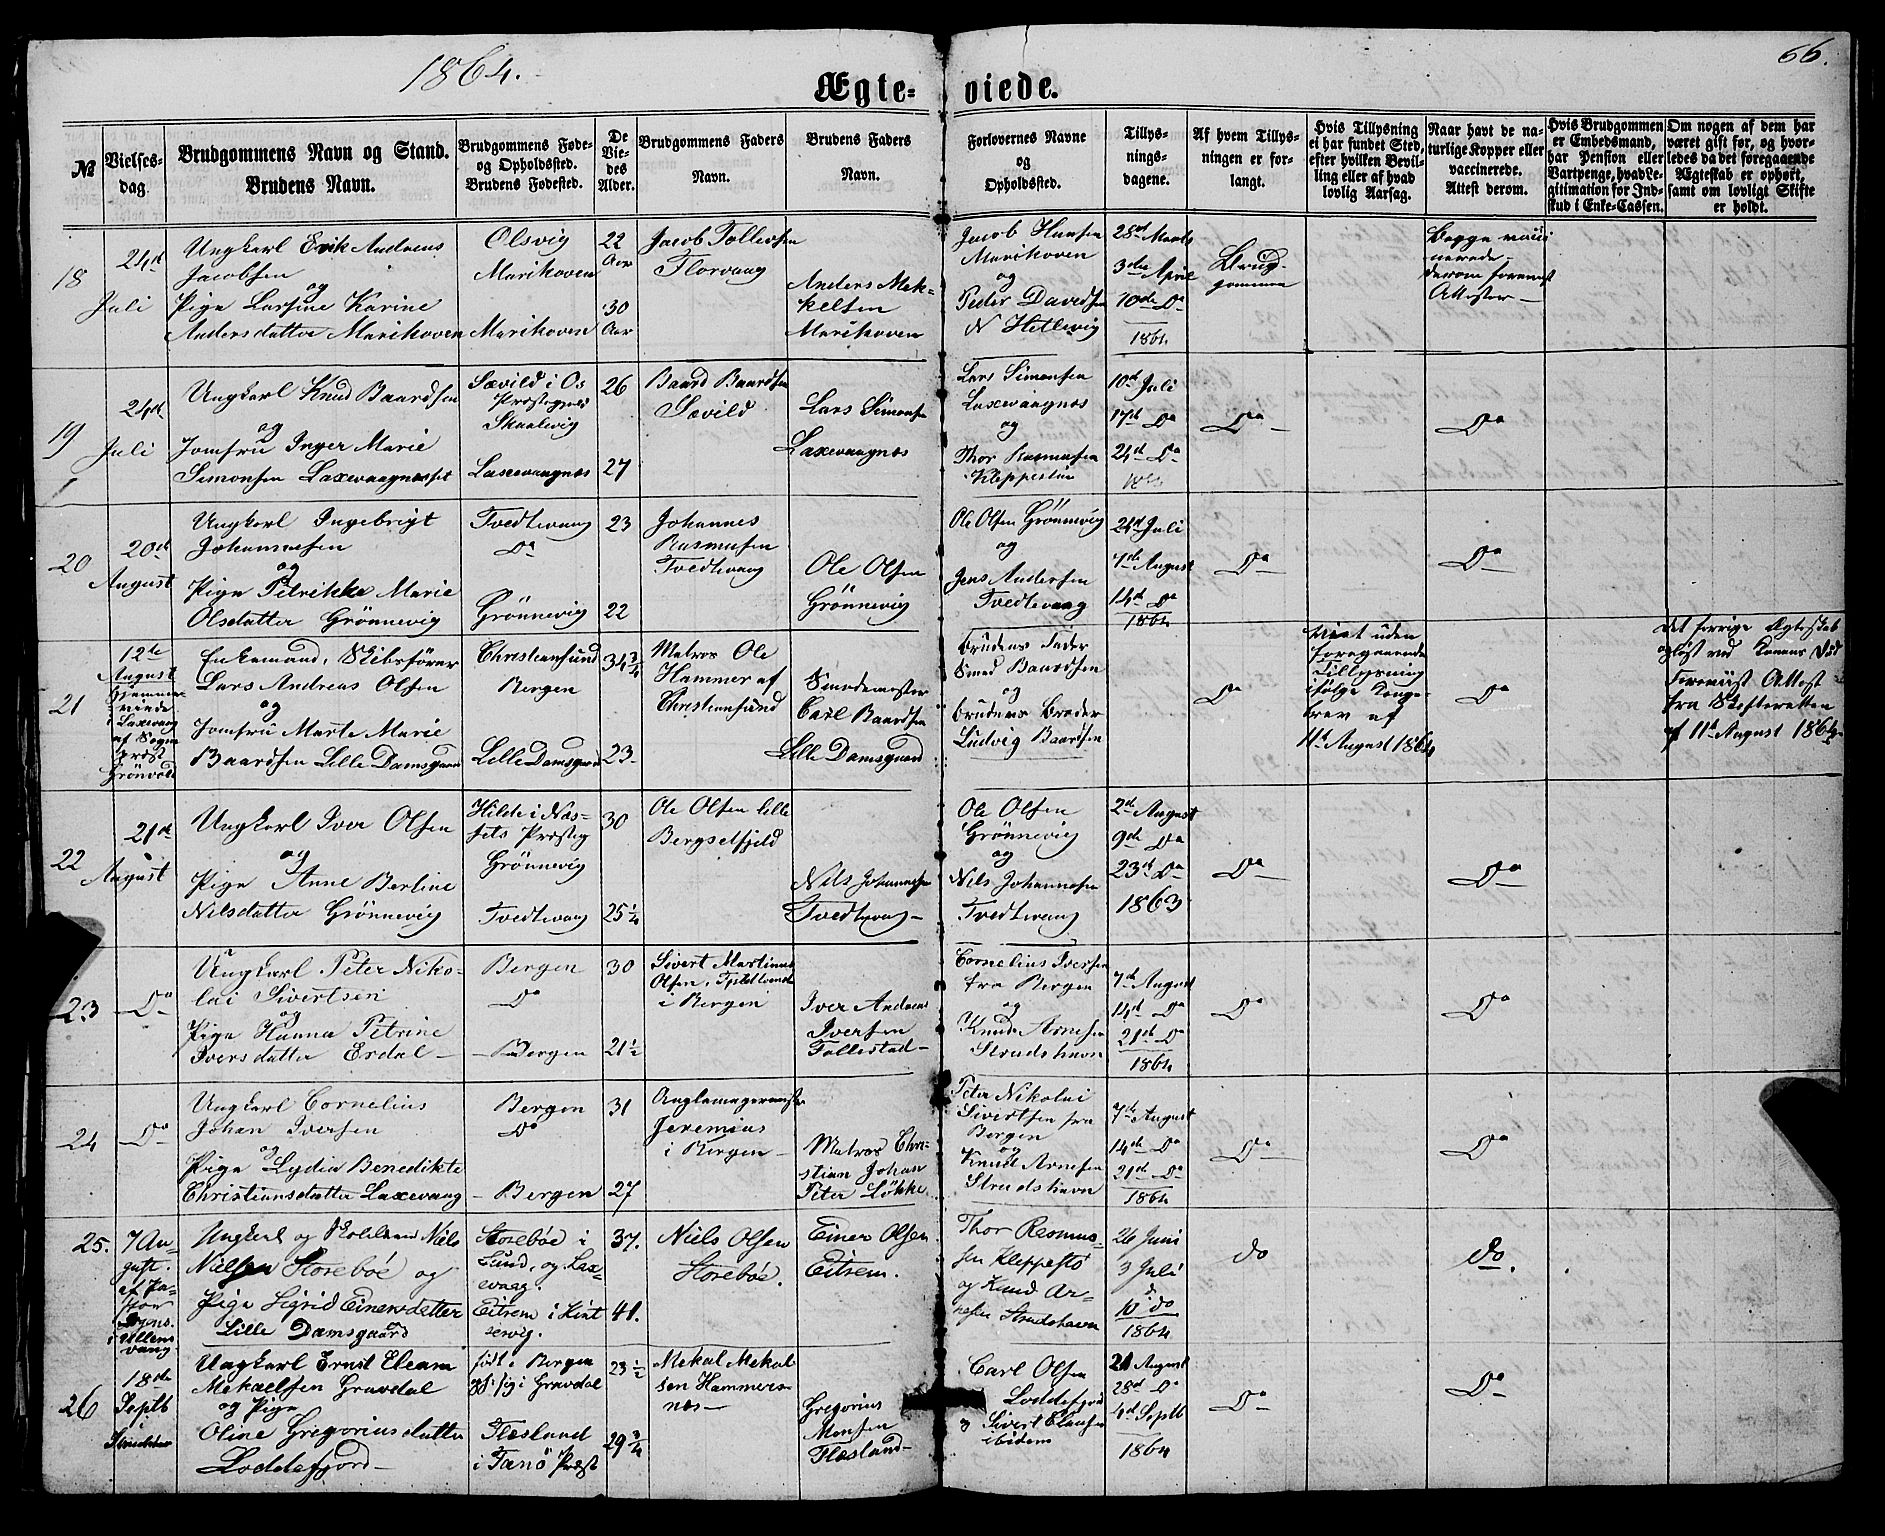 1864.
66.
Ægte-viede.
№
Vielses-
dag.
Brudgommens Navn og Stand.
Brudens Navn.
Brudgommens Føde-
og Opholdssted.
Brudens Fødested.
De
Vie-
des
Alder.
Brudgommens Faders
Navn.
Brudens Faders
Navn.
Forlovernes Navne
og
Opholdssted.
Tillys-
nings-
dagene.
Af hvem Tillys-
ningen er for-
langt.
Hvis Tillysning
ei har fundet Sted,
efter hvilken Bevil-
ling eller af hvad
lovlig Aarsag.
Naar havt de na-
turlige Kopper eller
vaccinerede.
Attest derom.
Hvis Brudgommen
er Embedsmand,
har Pension eller
Vartpenge, hvad Le-
gitimation for Ind-
skud i Enke-Cassen.
Om nogen af dem har
været gift før, og hvor-
ledes da det foregaaende
Ægteskab er ophørt,
samt om lovligt Skifte
er holdt.
18
24de
Juli
Ungkarl Erik Andreas
Jacobsen
og
Pige Larsine Karine
Andersdatter Marikoven
Olsvig
Marikoven
Marikoven
22
Aar
30
Aar
Jacob Tollevsen
Florvaag
Anders Mek-
kelsen
Marikoven
Jacob Hansen
Marikoven
og
Peder Davidsen
N Hetlevig
28de Marts
3die April
10de Do
1864
Brud-
gommen
Begge vacci
nerede
derom foreviist
Attester
19
24de
Juli
Ungkarl Knud Baardsen
og
Jomfru Inger Marie
Simonsen Laxevaagnesset
Sævild i Os
Præstegjeld
Skaalevig
Laxevaagnæs
26
27
Baard Baardsen
Sævild
Lars Simonsen
Laxevaagnæs
Lars Simonsen
Laxevaagnæs
og
Thor Rasmusen
Kleppestøe
10de Juli
17de Do
24de Do
1864
Do
Do
20
20de
August
Ungkarl Ingebrigt
Johannesen
og
Pige Petrikke Marie
Olsdatter Grönnevig
Tvedtevaag
Do
Grönnevig
23
22
Johannes
Rasmusen
Tvedtevaag
Ole Olsen
Grönnevig
Ole Olsen Grönnevig
og
Jens Andersen
Tvedtevaag
24de Juli
7de August
14de Do
1864
Do
Do
21
12te
August
Hjemme-
viede
i Laxevaag
af Sogne
præst
Grönvold
Enkemand, Skibsfører
Lars Andreas Olsen
og
Jomfru Marte Marie
Baardsen Lille Damsgaard
Christiansund
Bergen
Lille Damsgaard
34 3/4
23
Matros Ole
Hammer af
Christiansund
Smedemester
Carl Baardsen
Lille Damsgaard
Brudens Fader
Smed Baardsen
og
Brudens Broder
Ludvig Baardsen
Do
Viet uden
foregaaende
Tillysning
ifølge Konge-
brev af
11te August 1864
Do
Det forrige Ægteskab
opløst ved Konens Død
Foreviist Attest
fra Skifteretten
af 11te August 1864
22
21de
August
Ungkarl Iver Olsen
og
Pige Anne Berline
Nilsdatter Grönnevig
Hilde i Næs-
sets Præsteg
Grönnevig
Tvedtevaag
30
25 1/4
Ole Olsen lille
Bergsetfjeld
Nils Johannesen
Tvedtevaag
Ole Olsen
Grönnevig
og
Nils Johannesen
Tvedtevaag
2de August
9de Do
23de Do
1863
Do
Do
23
Do
Ungkarl Peter Niko-
lai Sivertsen
og
Pige Hanna Petrine
Iversdatter Erdal
Bergen
Do
Bergen
30
21 1/2
Sivert Martinus
Olsen,
i Bergen
Iver Andreas
Iversen
Follestad
Cornelius Iversen
fra Bergen
og
Knud Arnesen
Strudshavn
7de August
14de Do
21de Do
1864
Do
Do
24
Do
Ungkarl Cornelius
Johan Iversen
og
Pige Lydia Benedikte
Christiansdatter Laxevaag
Bergen
Do
Bergen
31
27
Jeremias
i Bergen
Matros Chri-
stian Johan
Peter Lökke
Peter Nikolai
Sivertsen fra
Bergen
og
Knud Arnesen
Strudshavn
7de August
14de Do
21de Do
1864
Do
Do
25.
7 Au-
gust.
af Pa-
stor
i Ullens-
vang
Ungkarl og Niels
Nielsen Storebøe og
Pige Sigrid Einersdatter
Lille Damsgaard
Storebøe i
Sund, og Lax-
evaag.
Eitrem i Kint
servig.
37.
41.
Niels Olsen
Storebøe.
Einer Olsen
Eitrem.
Thor Rasmus-
sen Kleppestö
og Knud Ar-
nesen Strudshavn
26 Juni
3 Juli
10 do
1864
do
do.
26
18de
Septb
Ungkarl Ernst Eleam
Mekaelsen Gravdal
og Pige
Oline Gregoriusdatter
Loddefjord
født i Bergen
opf. sig i Gravdal
Flesland
i Fanö Præst
23 1/2
29 3/4
Mekal Mekal
sen Hammers-
næs
Gregorius
Monsen
Flesland
Carl Olsen
Loddefjord
og Sivert Clausen
ibidem
21 August
28de Do
4de Septb
1864
Do
Do